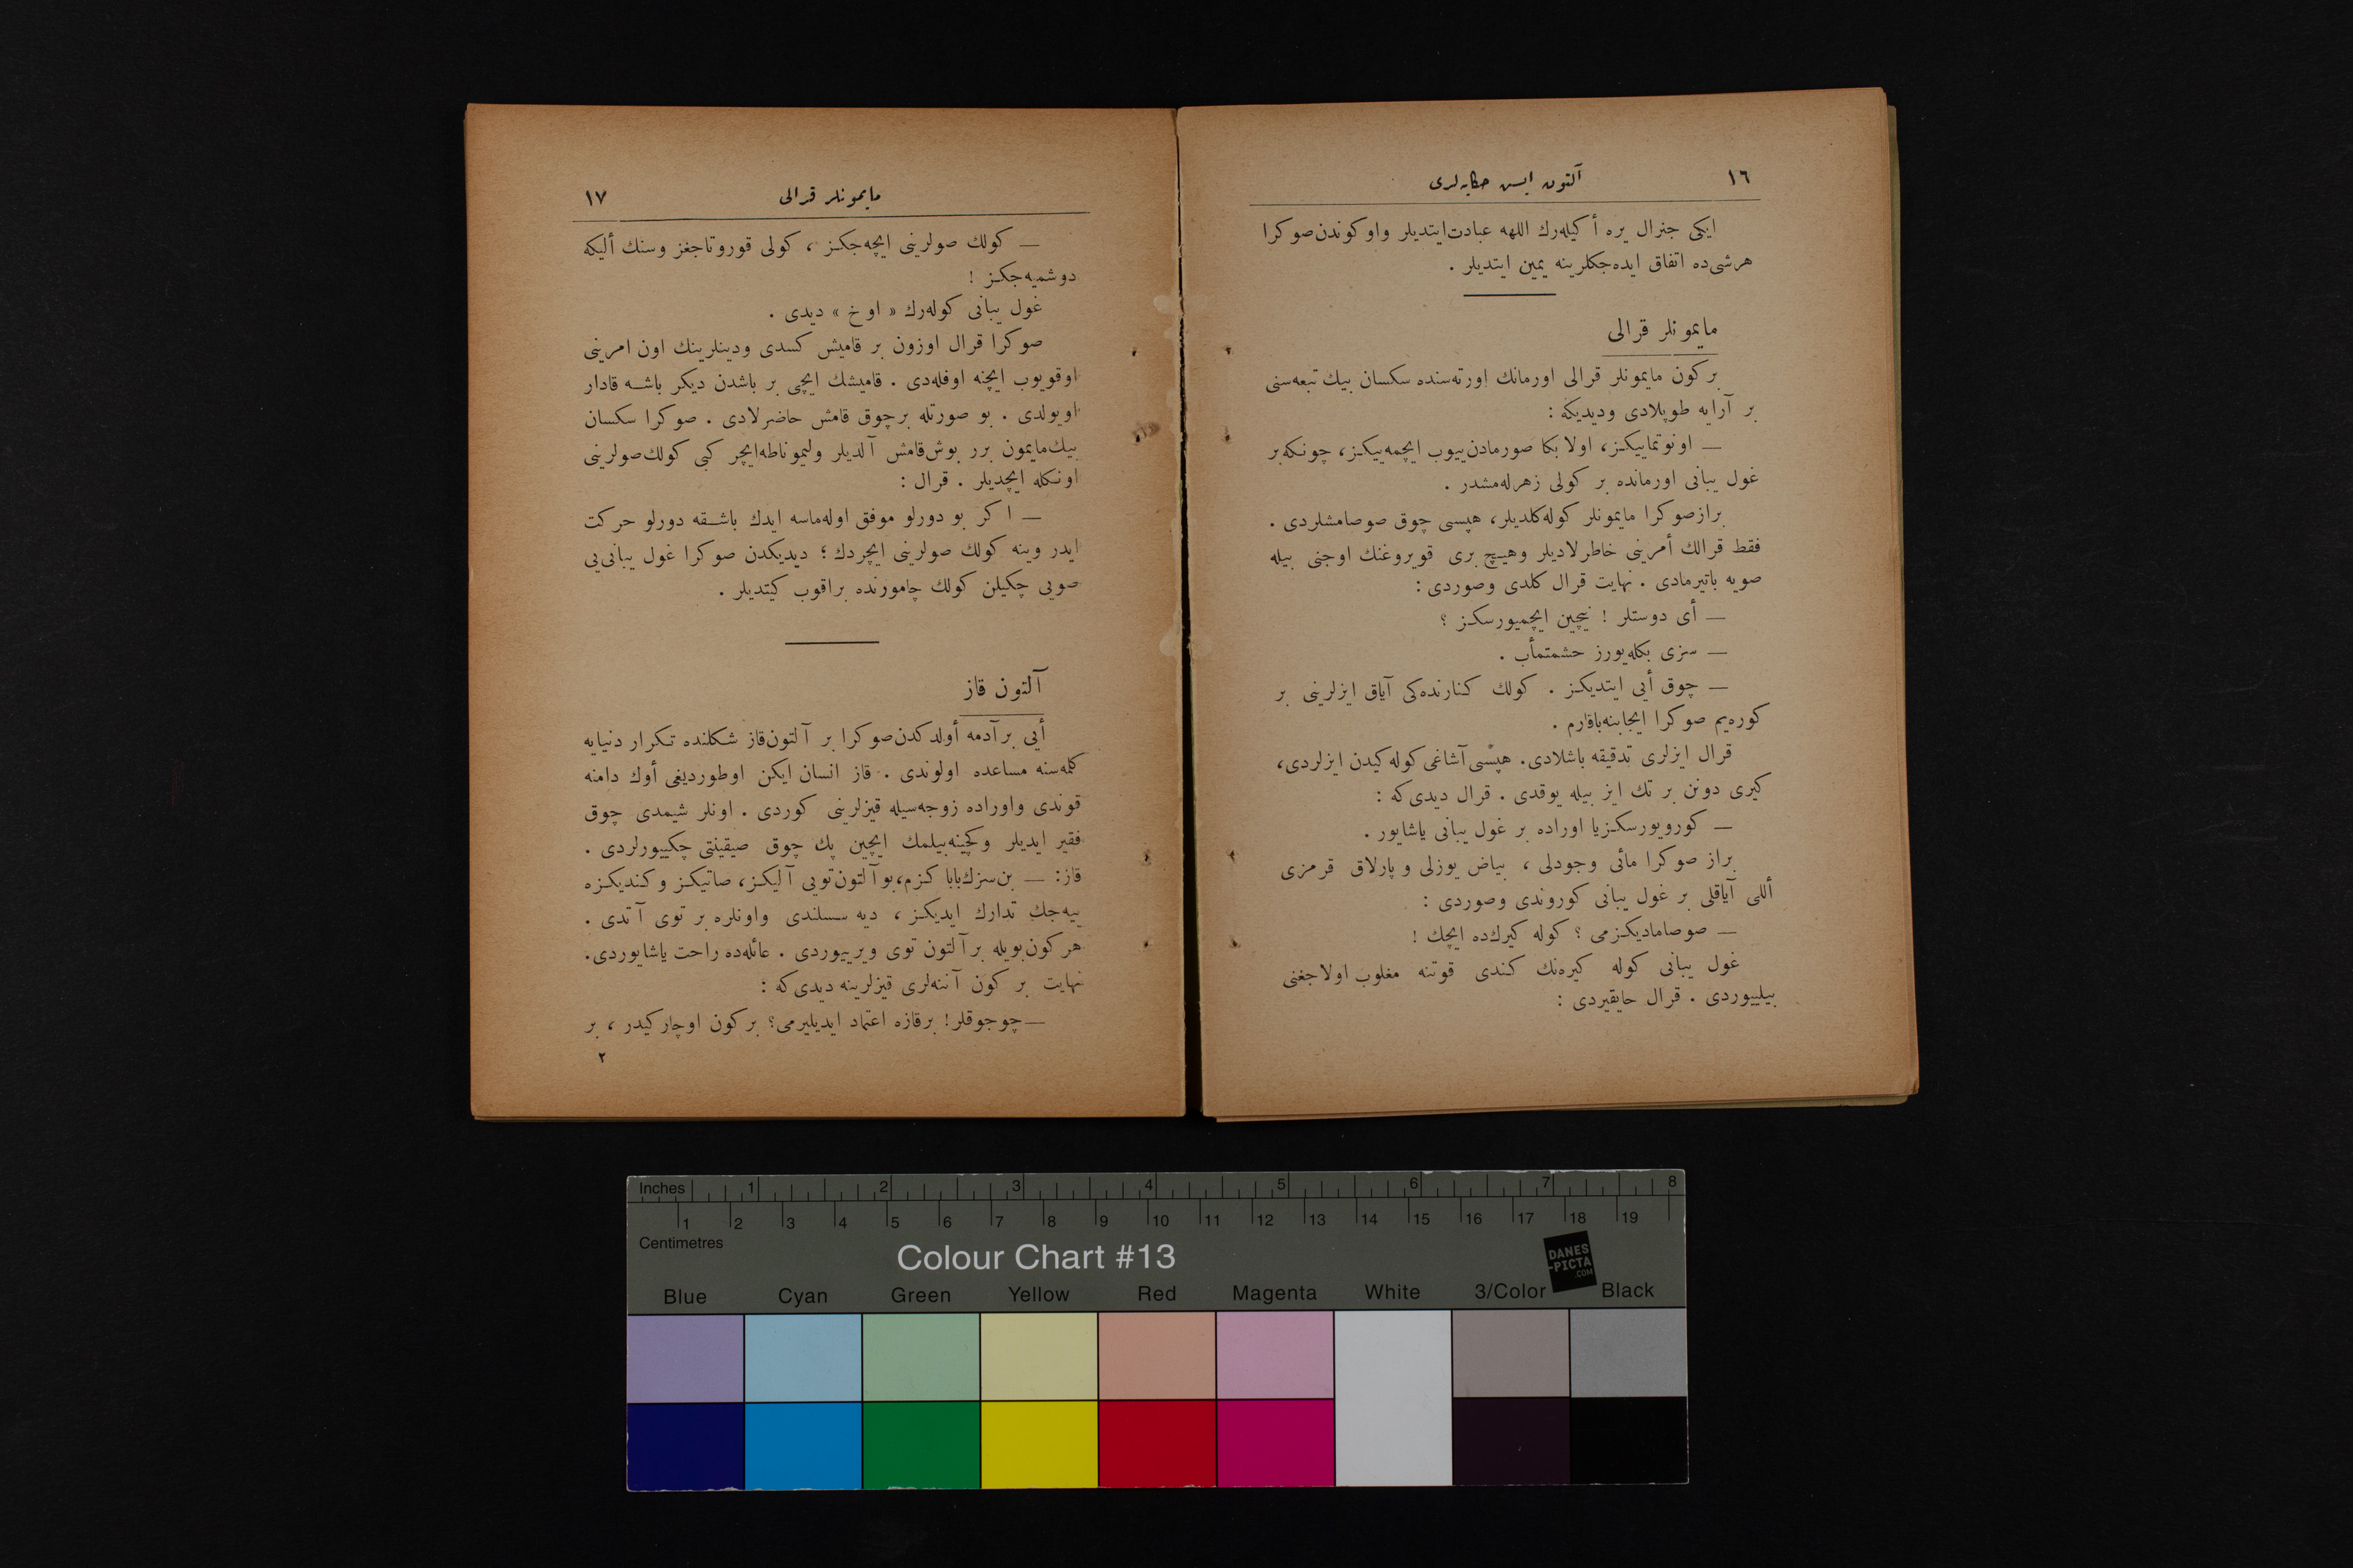 ١٦
آلتون ایسن حکایه‌لری
ایکی جنرال یره أکیله‌رك اللهه عبادت‌ایتدیلر واوکوندن‌صوکرا
هرشی‌ده اتفاق ایده‌جکلرینه یمین ایتدیلر .
مایمونلر قرالی
برکون مایمونلر قرالی اورمانك اورته‌سنده سکسان بیك تبعه‌سنی
بر آرایه طوپلادی ودیدیکه :
— اونوتماییکز، اولا بکا صورمادن‌ییوب ایچمه‌ییکز، چونکه‌بر
غول یبانی اورمانده بر کولی زهرله‌مشدر .
برازصوکرا مایمونلر کوله‌کلدیلر، هپسی چوق صوصامشلردی .
فقط قرالك أمرینی خاطرلادیلر وهیچ بری قویروغنك اوجنی بیله
صویه باتیرمادی . نهایت قرال کلدی وصوردی :
— أی دوستلر ! نیچین ایچمیورسکز ؟
— سزی بکله‌یورز حشمتمأب .
— چوق أیی ایتدیکز . کولك کنارنده‌کی آیاق ایزلرینی بر
کوره‌یم صوکرا ایجابنه‌باقارم .
قرال ایزلری تدقیقه باشلادی. هپسی آشاغی کوله کیدن ایزلردی،
کیری دونن بر تك ایز بیله یوقدی . قرال دیدی‌که :
— کورویورسکزیا اوراده بر غول یبانی یاشایور .
براز صوکرا مائی وجودلی ، بیاض یوزلی و پارلاق قرمزی
أللی آیاقلی بر غول یبانی کوروندی وصوردی :
— صوصامادیکزمی ؟ کوله کیرك‌ده ایچك !
غول یبانی کوله کیره‌نك کندی قوتنه مغلوب اولاجغنی
بیلییوردی . قرال حایقیردی :
مایمونلر قرالی
١٧
— کولك صولرینی ایچه‌جکز ، کولی قوروتاجغز وسنك ألیکه
دوشمیه‌جکز !
غول یبانی کوله‌رك « اوخ » دیدی .
صوکرا قرال اوزون بر قامیش کسدی ودینلرینك اون امرینی
اوقویوب ایچنه اوفله‌دی . قامیشك ایچی بر باشدن دیکر باشه قادار
اویولدی . بو صورتله برچوق قامش حاضرلادی . صوکرا سکسان
بیك‌مایمون برر بوش‌قامش آلدیلر ولیموناطه‌ایچر کبی کولك‌صولرینی
اونکله ایچدیلر . قرال :
— اکر بو دورلو موفق اوله‌ماسه ایدك باشقه دورلو حرکت
ایدر وینه کولك صولرینی ایچردك ؛ دیدیکدن صوکرا غول یبانی‌یی
صویی چکیلن کولك چامورنده براقوب کیتدیلر .
آلتون قاز
أیی برآدمه أولدکدن‌صوکرا بر آلتون‌قاز شکلنده تکرار دنیایه
کلمه‌سنه مساعده اولوندی . قاز انسان ایکن اوطوردیغی أوك دامنه
قوندی واوراده زوجه‌سیله قیزلرینی کوردی . اونلر شیمدی چوق
فقیر ایدیلر وکچینه‌بیلمك ایچین پك چوق صیقینتی چکییورلردی .
قاز: — بن‌سزك‌بابا کزم،بوآلتون‌تویی آلیکز، صاتیکز وکندیکزه
ییه‌جك تدارك ایدیکز ، دیه سسلندی واونلره بر توی آتدی .
هرکون‌بویله برآلتون توی ویرییوردی . عائله‌ده راحت یاشایوردی.
نهایت بر کون آننه‌لری قیزلرینه دیدی‌که :
— چوجوقلر! برقازه اعتماد ایدیلیرمی؟ برکون اوچارکیدر ، بر
٢
Inches 1 2 3 4 5 6 7 8
1 2 3 4 5 6 7 8 9 10 11 12 13 14 15 16 17 18 19
Centimetres
Colour Chart #13
DANES
-PICTA
.COM
Blue Cyan Green Yellow Red Magenta White 3/Color Black